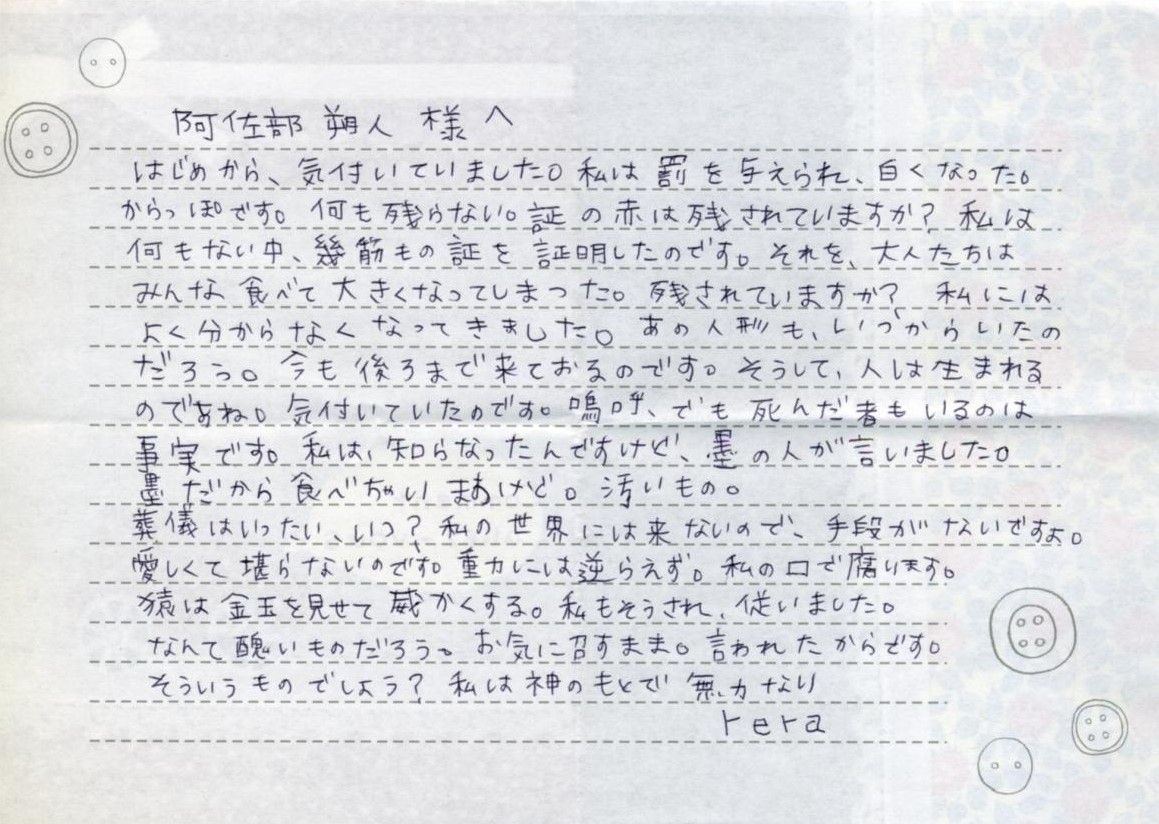 阿佐部 朔人 様へ
はじめから、気付いていました。私は罰を与えられ、白くなった。
からっぽです。何も残らない。証の赤は残されていますか？私は
何もない中、幾筋もの証を証明したのです。それを、大人たちは
みんな食べて大きくなってしまった。残されていますか？、私には
よく分からなくなってきました。あの人形も、いつからいたの
だろう。今も後ろまで来ておるのです。そうして、人は生まれる
のですね。気付いていたのです。嗚呼、でも死んだ者もいるのは
事実です。私は、知らなったんですけど、墨の人が言いました。
墨だから食べちゃいまあけど。汚いもの。
葬儀はいったい、いつ？、私の世界には来ないので、手段がないですよ。
愛しくて堪らないのです。重力には逆らえず。私の口で腐います。
猿は金玉を見せて威かくする。私もそうされ、従いました。
なんて醜いものだろう。お気に召すまま。言われたからです。
そういうものでしょう？私は神のもとで無力なり
rera